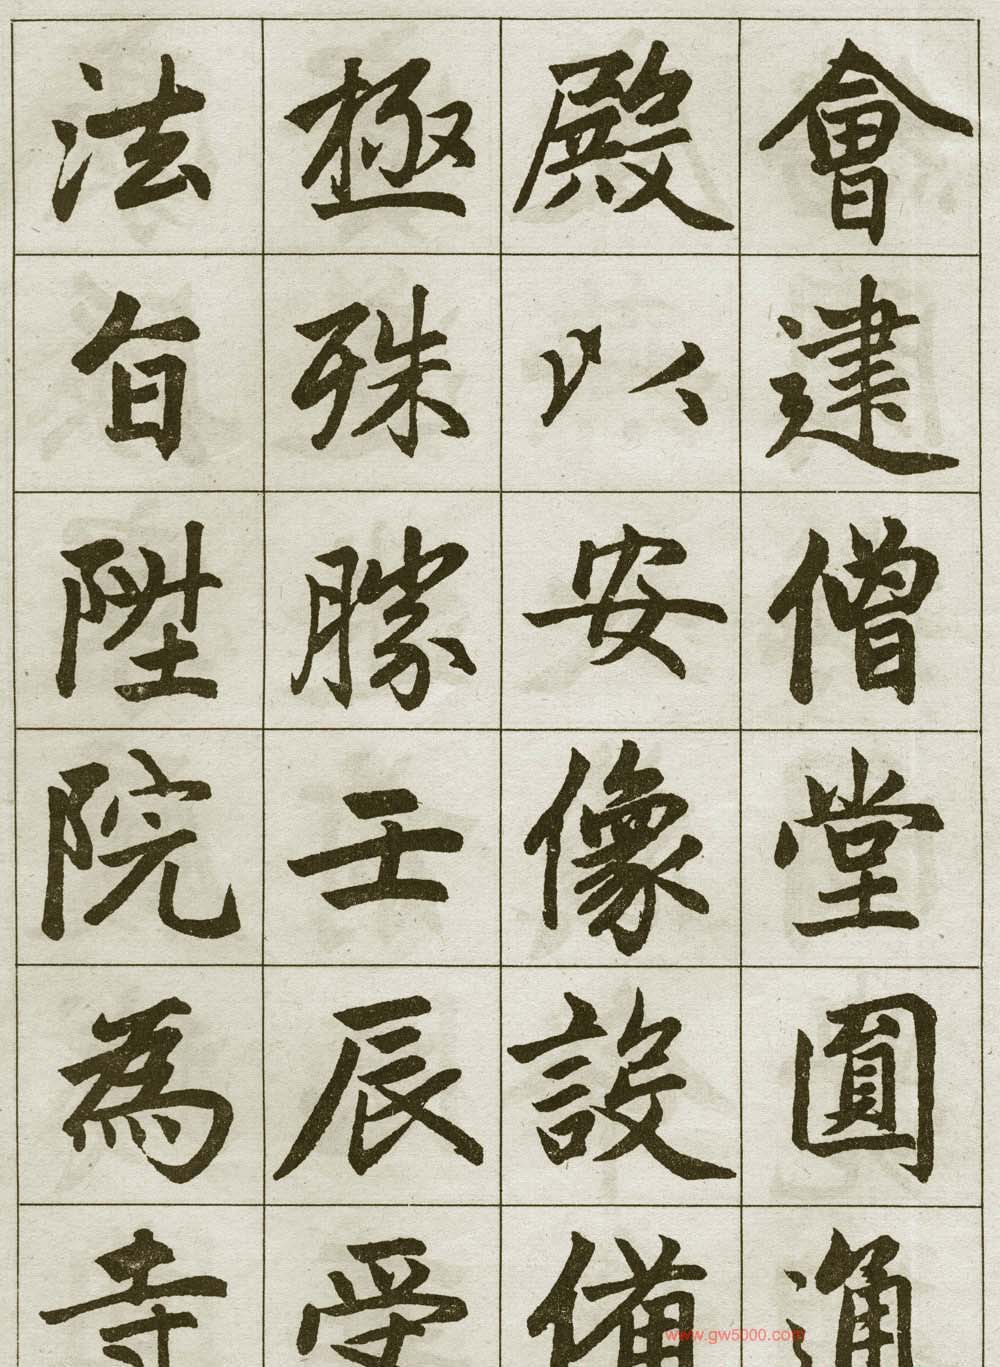 會建僧堂圓通
殿以安像設備
極殊勝壬辰受
法旨陞院為寺
www.gw5000.com